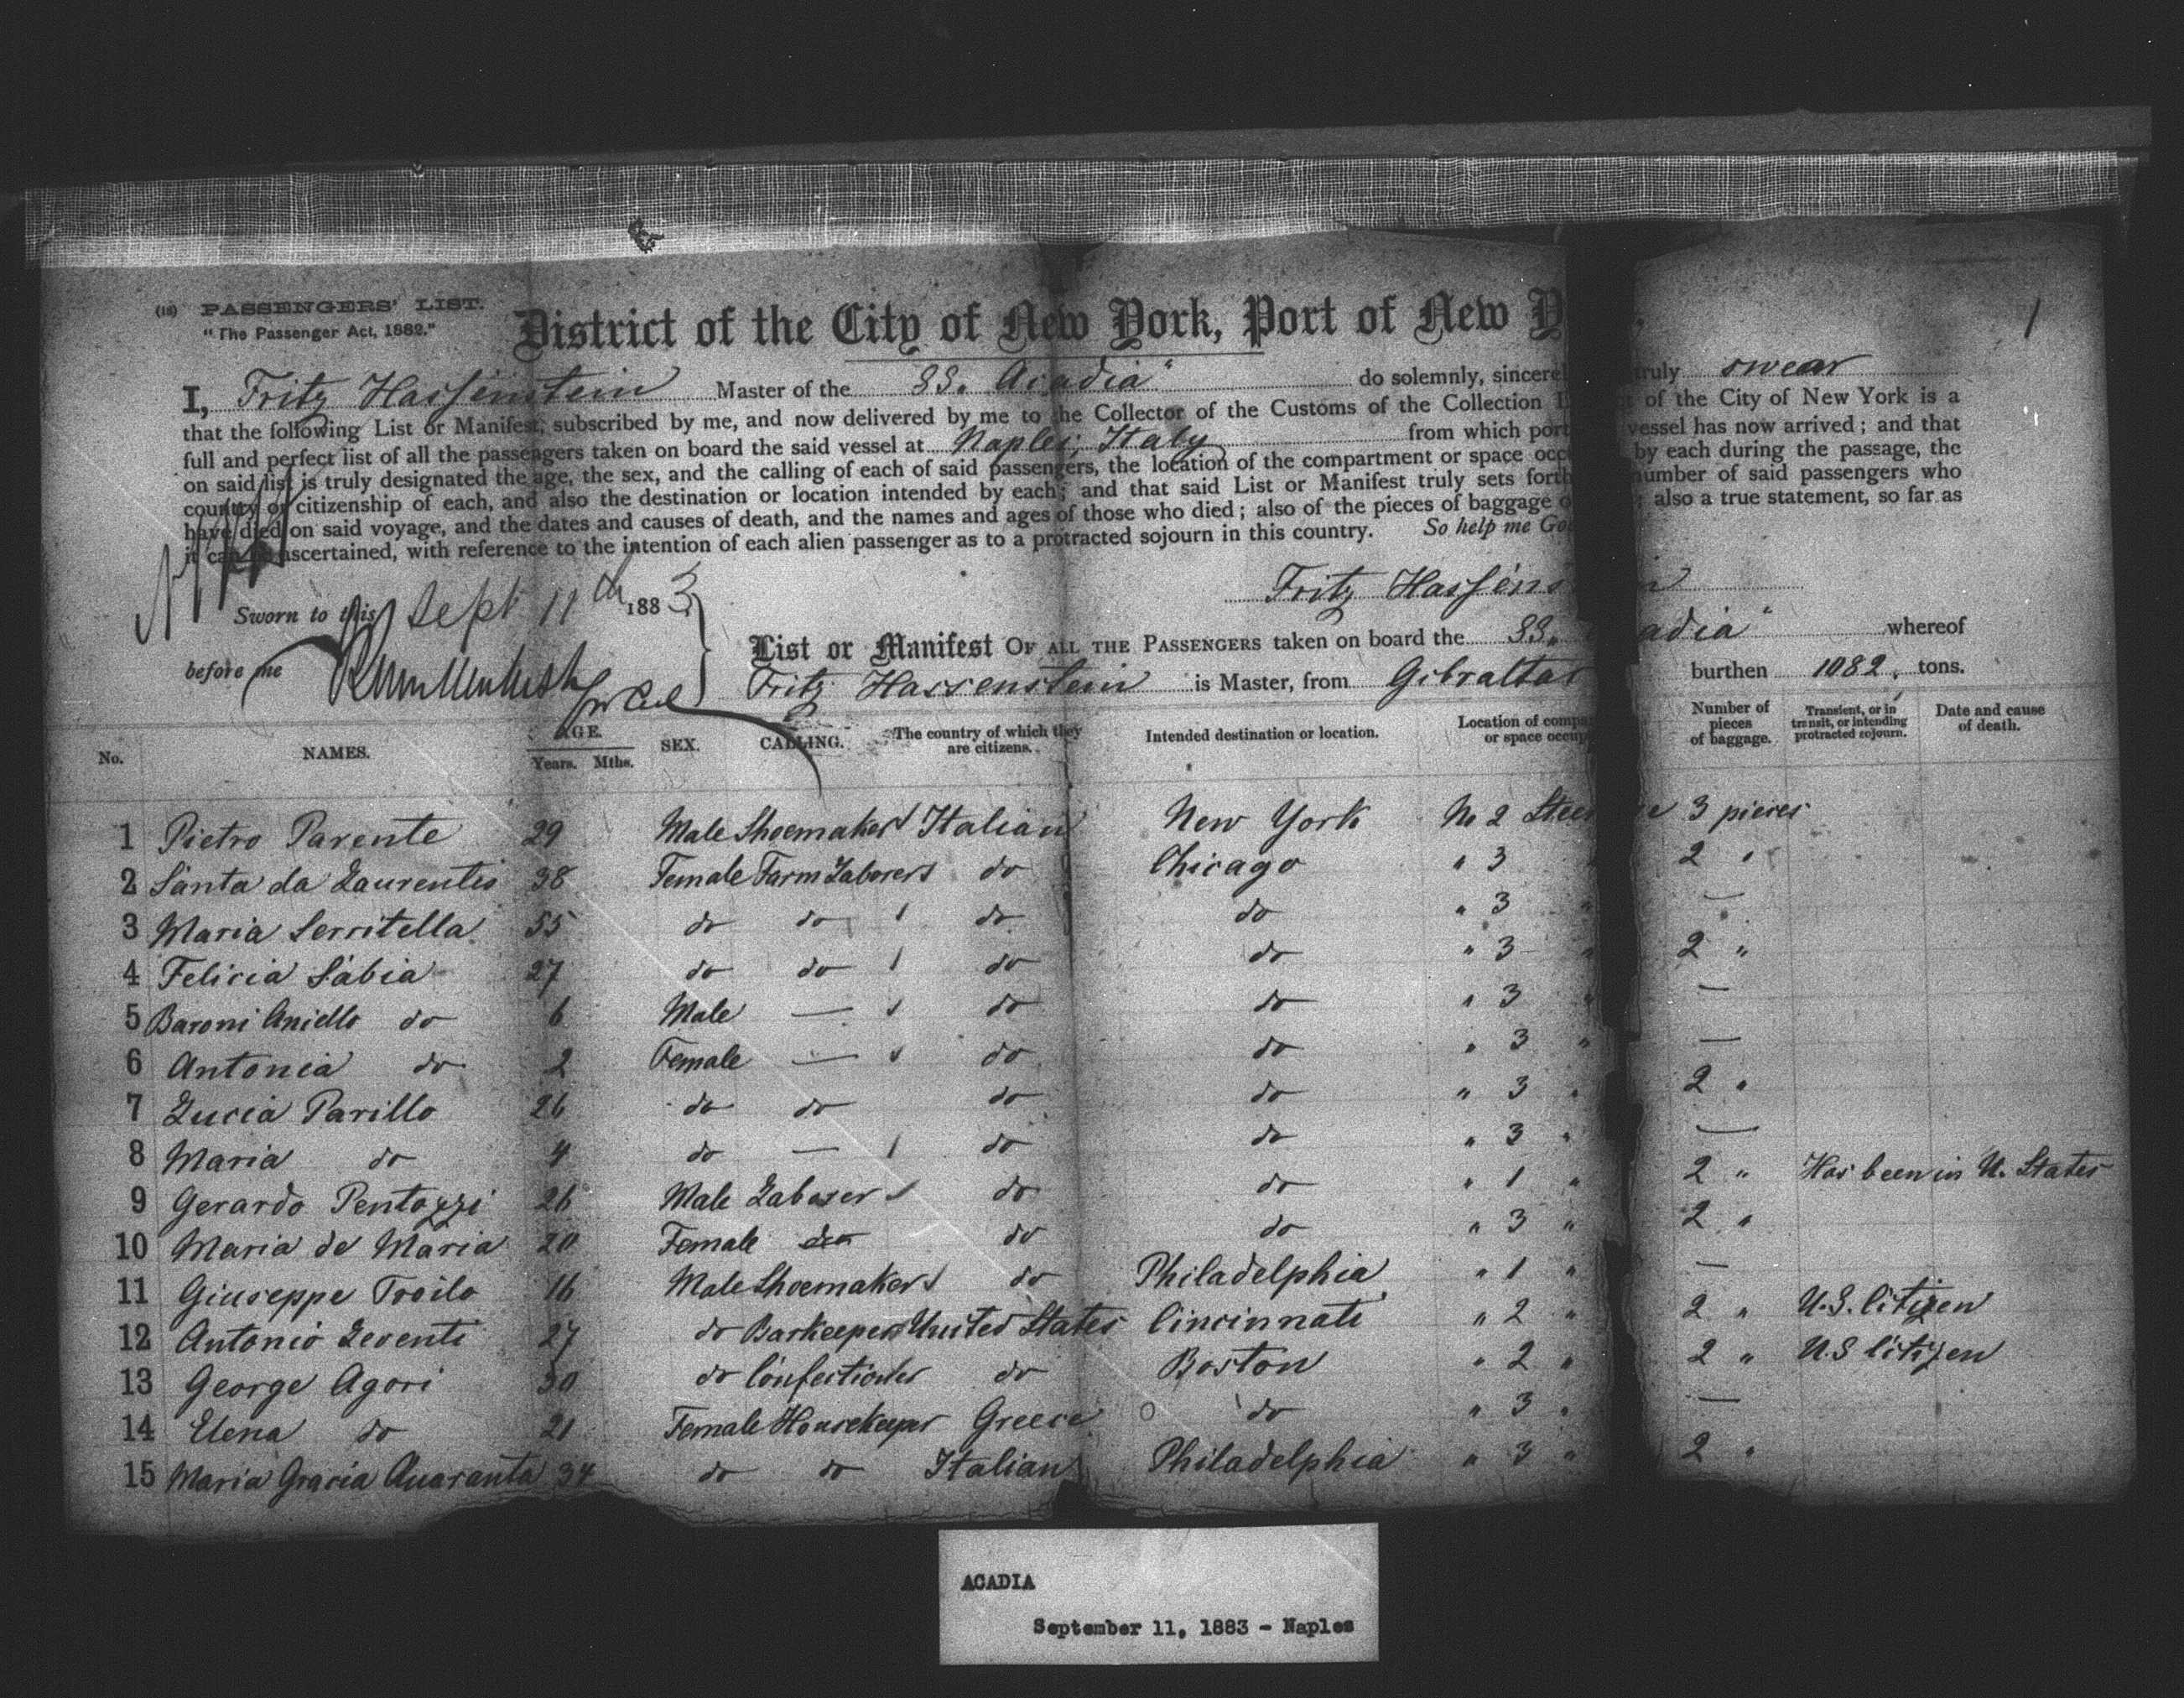 (18) PASSENGERS' LIST.
"The Passenger Act, 1882."
District of the City of New York, Port of New Y
1
I, Fritz Hassenstein Master of the SS. Acadia" do solemnly, sincerel truly swear
that the following List or Manifest, subscribed by me, and now delivered by me to the Collector of the Customs of the Collection D of the City of New York is a
full and perfect list of all the passengers taken on board the said vessel at Naples, Italy from which port vessel has now arrived; and that
on said list is truly designated the age, the sex, and the calling of each of said passengers, the location of the compartment or space occ by each during the passage, the
country of citizenship of each, and also the destination or location intended by each; and that said List or Manifest truly sets forth number of said passengers who
have died on said voyage, and the dates and causes of death, and the names and ages of those who died; also of the pieces of baggage o ; also a true statement, so far as
it can be ascertained, with reference to the intention of each alien passenger as to a protracted sojourn in this country. So help me Go
Fritz Hassens in
Sworn to this Sept 11th 1883
before me
List or Manifest OF ALL THE PASSENGERS taken on board the SS. adia" whereof
Fritz Hassenstein is Master, from Gibraltar burthen 1082. tons.
No. NAMES. AGE. Years. Mths. SEX. CALLING. The country of which they are citizens. Intended destination or location. Location of compa or space occup Number of pieces of baggage. Transient, or in transit, or intending protracted sojourn. Date and cause of death.
1 Pietro Parente 29 Male Shoemaker Italian New York No 2 Steer e 3 pieces
2 Santa da Laurentis 38 Female Farm Laborers do Chicago " 3 2 "
3 Maria Serritella 55 do do do do " 3 " —
4 Felicia Sabia 27 do do do do " 3 " 2 "
5 Baroni Aniello do 6 Male — do do " 3 " —
6 Antonia do 2 Female — do do " 3 " —
7 Lucia Parillo 26 do do do do " 3 " 2 "
8 Maria do 4 do — do do " 3 " —
9 Gerardo Pentozzi 26 Male Laborer do do " 1 " 2 " Has been in U. States
10 Maria de Maria 20 Female do do " 3 " 2 "
11 Giuseppe Troilo 16 Male Shoemaker do Philadelphia " 1 " —
12 Antonio Leventi 27 do Barkeeper United States Cincinnati " 2 " 2 " U.S. Citizen
13 George Agori 30 do Confectioner do Boston " 2 " 2 " U.S Citizen
14 Elena do 21 Female Housekeeper Greece do " 3 " —
15 Maria Gracia Quaranta 34 do do Italian Philadelphia " 3 " 2 "
ACADIA
September 11, 1883 - Naples